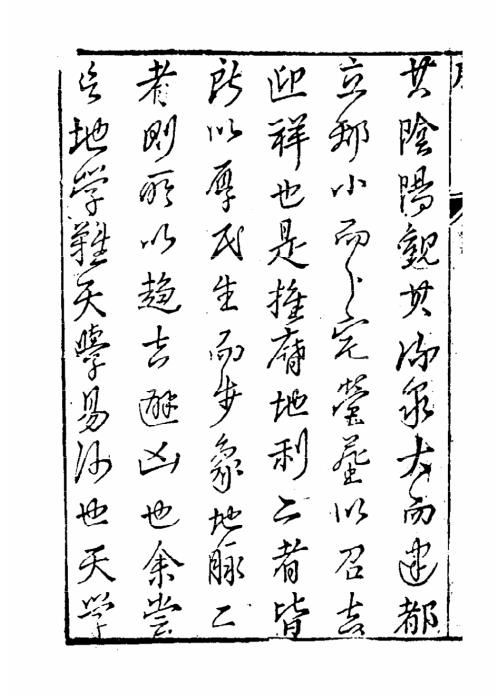 其陰陽觀其流泉大而建都
立郡小而卜宅營墓以召吉
迎祥也是推度地利二者皆
所以厚民生而步象地脉二
者則所以趨吉避凶也余嘗
言地學難天學易何也天學